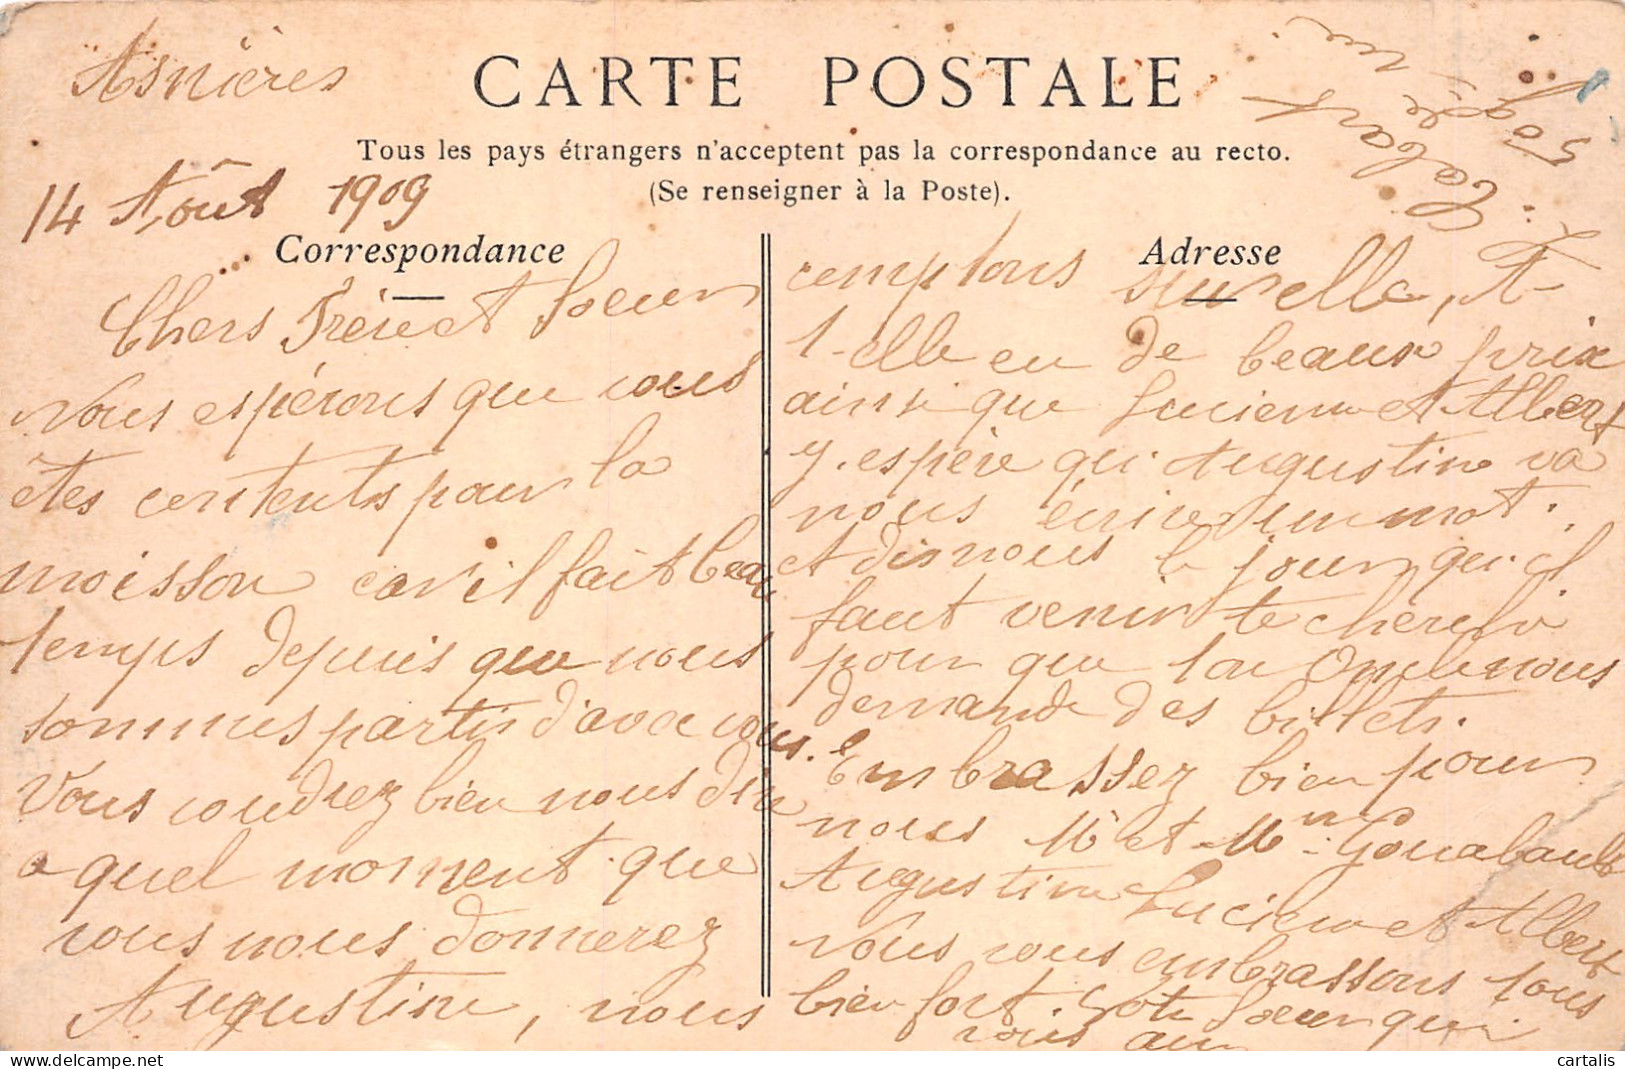 Asnières
14 Août 1909
CARTE POSTALE
Tous les pays étrangers n'acceptent pas la correspondance au recto.
(Se renseigner à la Poste).
Correspondance
Chers Frère et Soeur
Nous espérons que vous
êtes contents pour la
moisson car il fait beau
temps depuis que nous
sommes partis d'avec vous.
Vous voudrez bien nous dire
a quel moment que
vous nous donnerez
Augustine, nous
Adresse
comptons sur elle, A-
t-elle eu de beaux prix
ainsi que Lucien et Albert
j.espère qu. Augustine va
nous écrire un mot.
et dis nous le jour qu.il
faut venir te cherché
pour que ton Oncle nous
demande des billets.
Embrassez bien pour
nous Mr et Mme
Augustine Lucien et Albert
Nous vous embrassons tous
bien fort. Soeur qui
vous
50
rue
cartalis